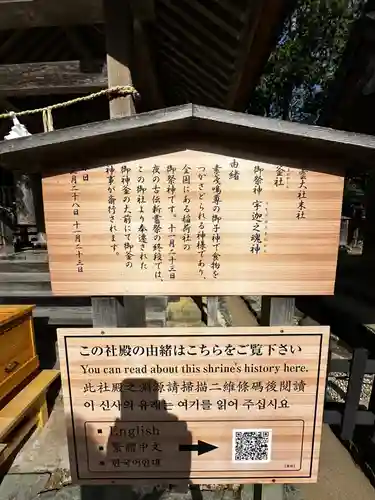 雲大社末社
釜社
御祭神 宇迦之魂神
由緒
素戔嗚尊の御子神で食物を
つかさどられる神様であり、
全国にある稲荷神社の
御祭神です。十一月二十三日
夜の古伝新嘗祭の終段では、
この御社より奉遷された
御神釜の前にて御釜の
神事が斎行されます。
日
二月二十八日 十一月二十三日
この社殿の由緒はこちらをご覧下さい
You can read about this shrine's history here.
此社殿之淵源請掃描二維條碼後閱讀
이 신사의 유래는 여기를 읽어 주십시요
■ English
■ 繁體中文
■ 한국어언대